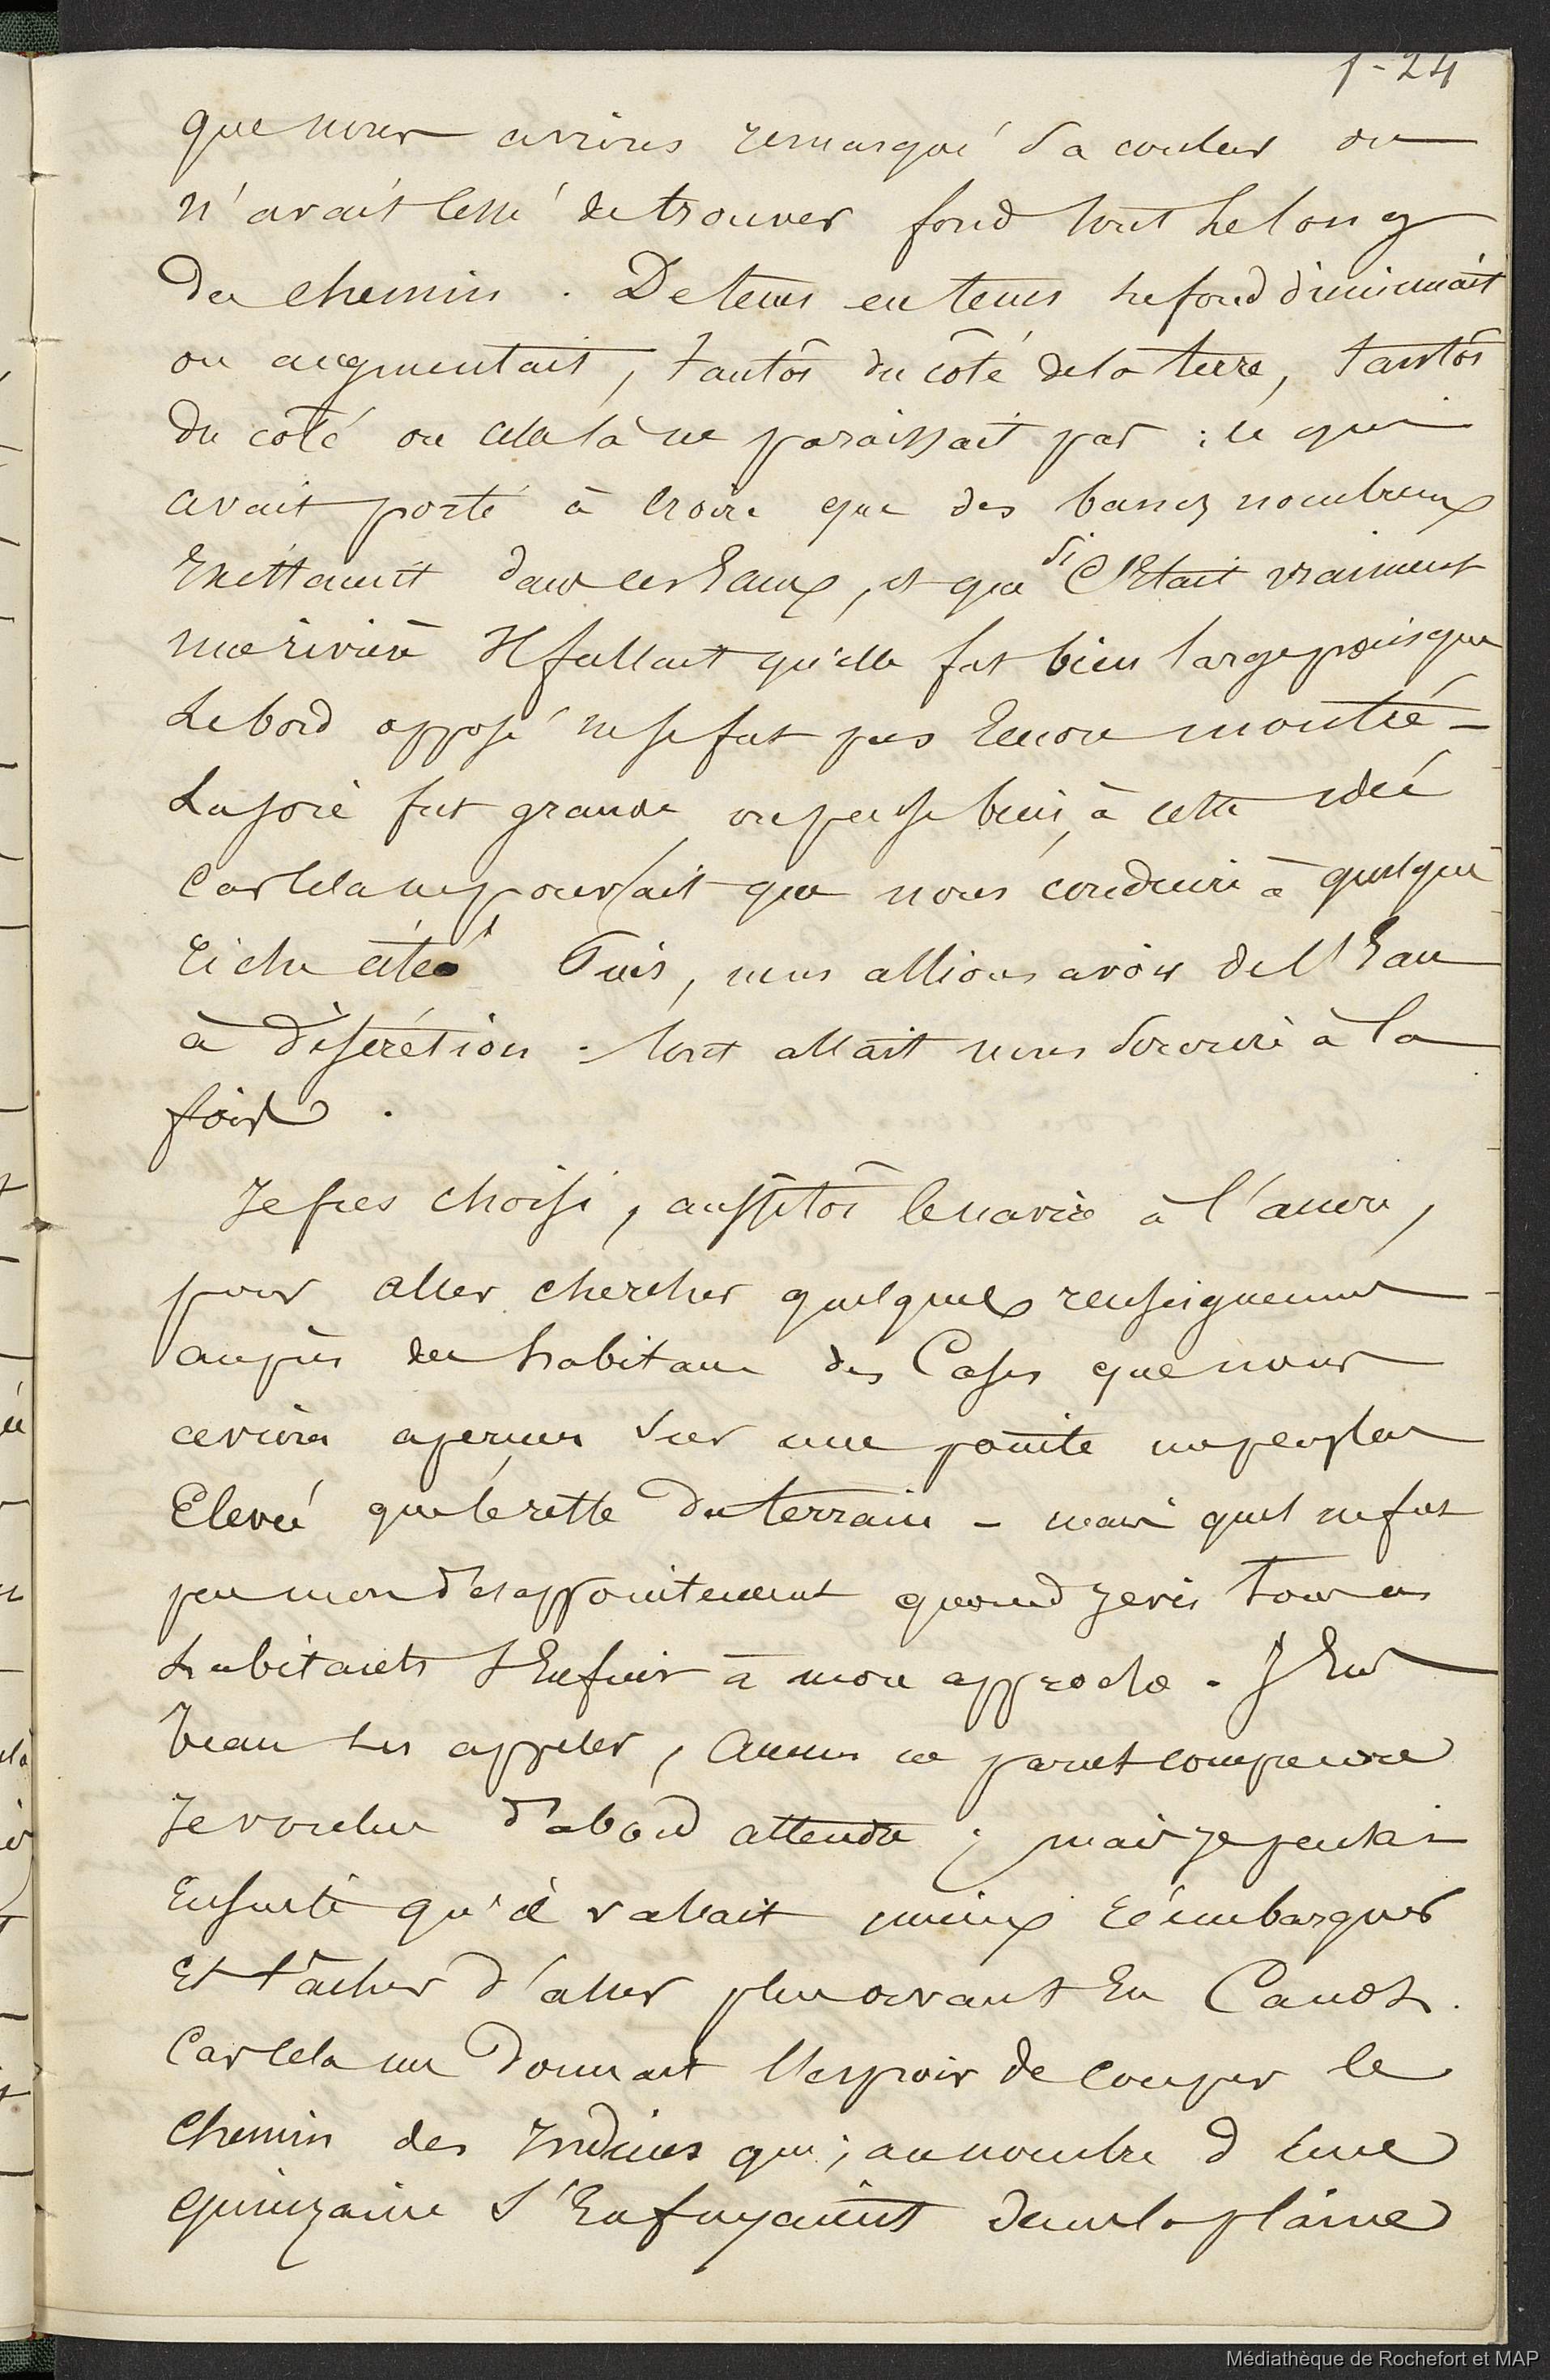 1-24
que nous avions remarqué sa couleur on
n'avait cessé de trouver fond tout le long
du chemin. De tems en tems le fond diminuait
ou augmentait, tantôt du côté de la terre, tantôt
du côté ou celle là ne paraissait pas : ce qui
avait porté à croire que des bancs nombreux
Existaient dans ces Eaux, et que si C'Etait vraiment
une rivière Il fallait qu'elle fut bien large puisque
le bord opposé ne se fut pas Encore montré -
La joie fut grande on pense bien, à cette idée
Car cela ne pouvait que nous conduire à quelque
riche cité Puis, nous allions avoir de l'Eau
à discrétion - tout allait nous sourire à la
fois.
Je fus choisi, aussitôt le navire à l'ancre,
pour aller chercher quelques renseignemens
auprès des habitans des Cases que nous
avions aperçues sur une pointe un peu plus
Elevée que le reste du terrain - mais quel ne fut
pas mon désappointement quand je vis tous ces
habitants s'Enfuir à mon approche. J'Eus
beau les appeler, Aucun ne parut comprendre
Je voulus d'abord attendre ; mais je pensai
Ensuite qu'il valait mieux réembarquer
Et tâcher d'aller plus avant En Canot.
Car cela me donnait l'espoir de couper le
Chemin des Indiens qui, au nombre d'une
quinzaine s'Enfuyaient dans la plaine
Médiathèque de Rochefort et MAP